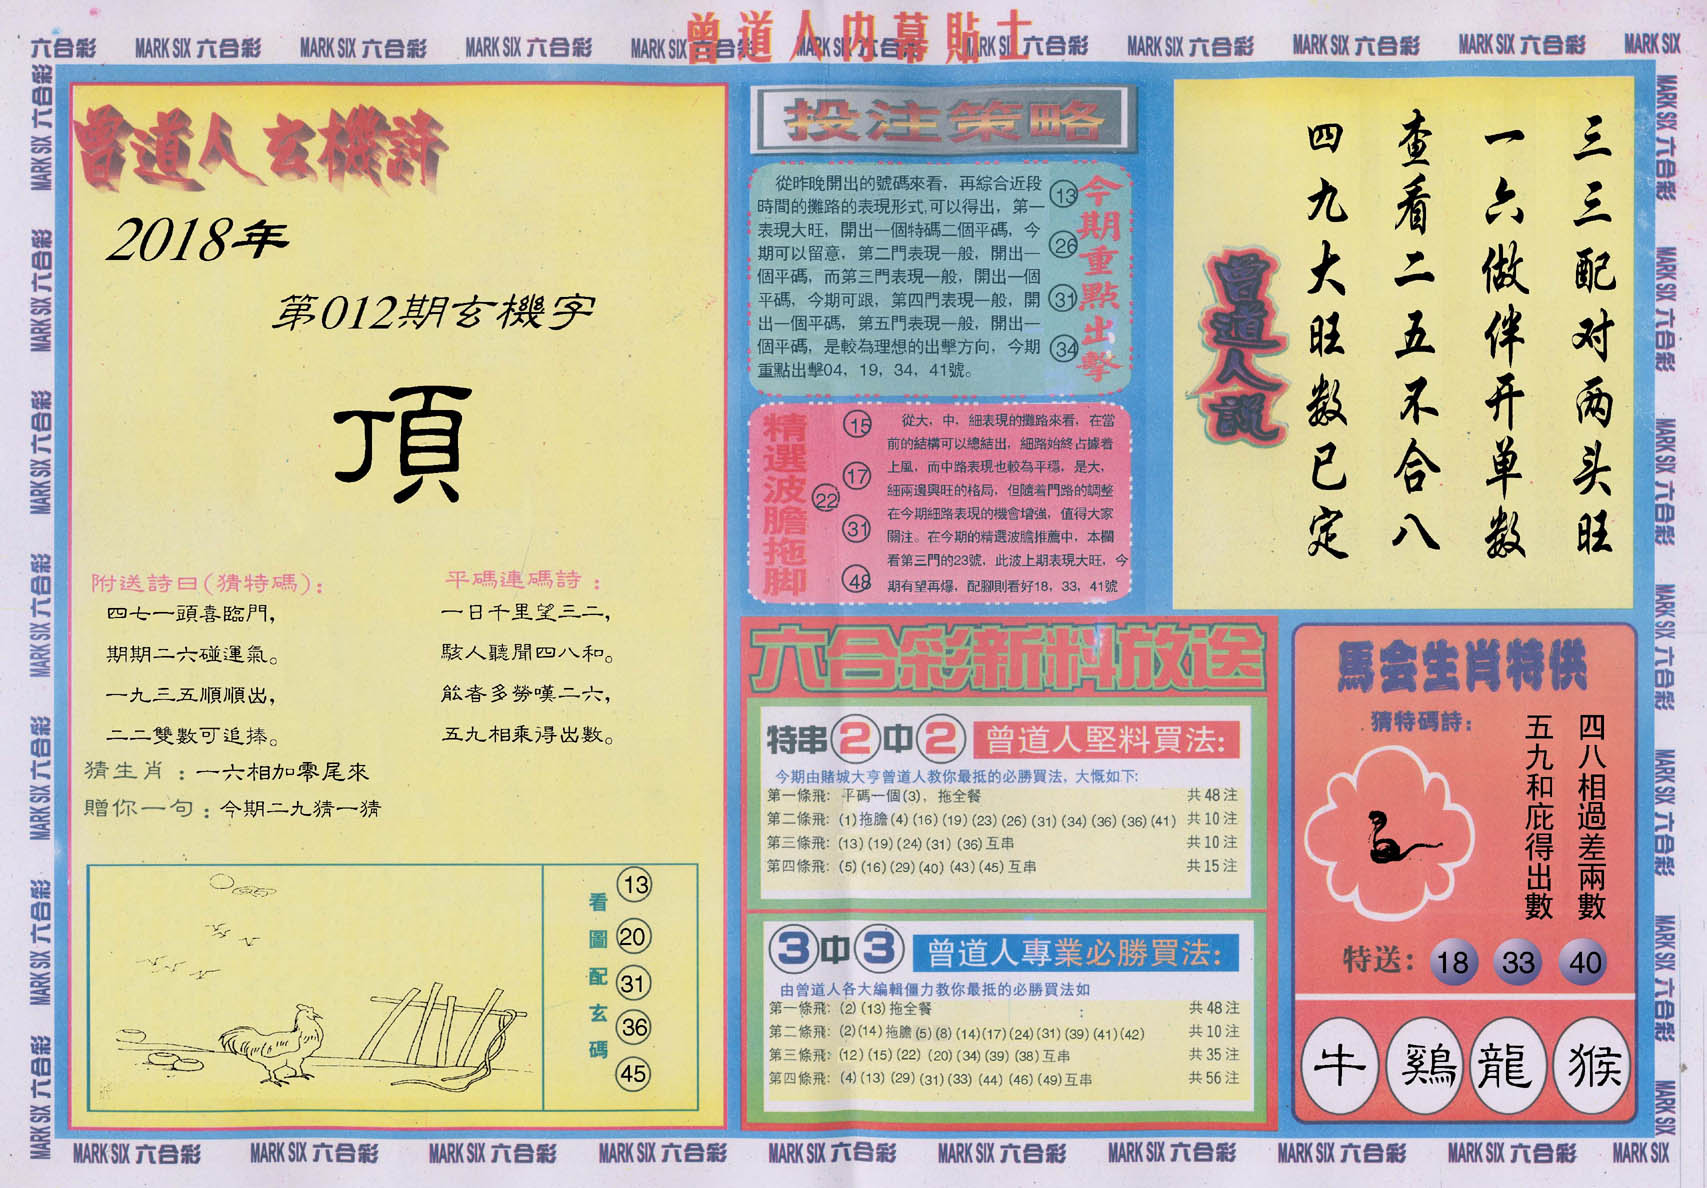 曾道人内幕貼士
六合彩 MARK SIX 六合彩 MARK SIX 六合彩 MARK SIX 六合彩 MARK SIX 六合彩 MARK SIX 六合彩 MARK SIX 六合彩 MARK SIX 六合彩 MARK SIX 六合彩 MARK SIX 六合彩 MARK SIX
曾道人玄機詩
2018年
第012期玄機字
頂
附送詩曰(猜特碼):
四七一頭喜臨門,
期期二六碰運氣。
一九三五順順出,
二二雙數可追捧。
平碼連碼詩:
一日千里望三二,
駭人聽聞四八和。
能者多勞嘆二六,
五九相乘得出數。
猜生肖:一六相加零尾來
贈你一句:今期二九猜一猜
看圖配玄碼
13
20
31
36
45
投注策略
從昨晚開出的號碼來看,再綜合近段
時間的攤路的表現形式,可以得出,第一
表現大旺,開出一個特碼二個平碼,今
期可以留意,第二門表現一般,開出一
個平碼,而第三門表現一般,開出一個
平碼,今期可跟,第四門表現一般,開
出一個平碼,第五門表現一般,開出一
個平碼,是較為理想的出擊方向,今期
重點出擊04,19,34,41號。
13
26
31
34
今期重點出擊
精選波膽拖脚
15
17
22
31
48
從大,中,細表現的攤路來看,在當
前的結構可以總結出,細路始終占據着
上風,而中路表現也較為平穩,是大,
細兩邊興旺的格局,但隨着門路的調整
在今期細路表現的機會增強,值得大家
關注。在今期的精選波膽推薦中,本欄
看第三門的23號,此波上期表現大旺,今
期有望再爆,配腳則看好18,33,41號
三三配对两头旺
一六做伴开单数
查看二五不合八
四九大旺数已定
曾道人說
六合彩新料放送
特串2中2 曾道人堅料買法:
今期由賭城大亨曾道人教你最抵的必勝買法,大慨如下:
第一條飛: 平碼一個(3),拖全餐 共48注
第二條飛: (1)拖膽(4)(16)(19)(23)(26)(31)(34)(36)(36)(41) 共10注
第三條飛: (13)(19)(24)(31)(36)互串 共10注
第四條飛: (5)(16)(29)(40)(43)(45)互串 共15注
3中3 曾道人專業必勝買法:
由曾道人各大編輯僵力教你最抵的必勝買法如
第一條飛: (2)(13)拖全餐 共48注
第二條飛: (2)(14)拖膽(5)(8)(14)(17)(24)(31)(39)(41)(42) 共10注
第三條飛: (12)(15)(22)(20)(34)(39)(38)互串 共35注
第四條飛: (4)(13)(29)(31)(33)(44)(46)(49)互串 共56注
馬会生肖特供
猜特碼詩:
四八相過差兩數
五九和庇得出數
特送: 18 33 40
牛 鷄 龍 猴
MARK SIX 六合彩 MARK SIX 六合彩 MARK SIX 六合彩 MARK SIX 六合彩 MARK SIX 六合彩 MARK SIX 六合彩 MARK SIX 六合彩 MARK SIX 六合彩 MARK SIX 六合彩 MARK SIX